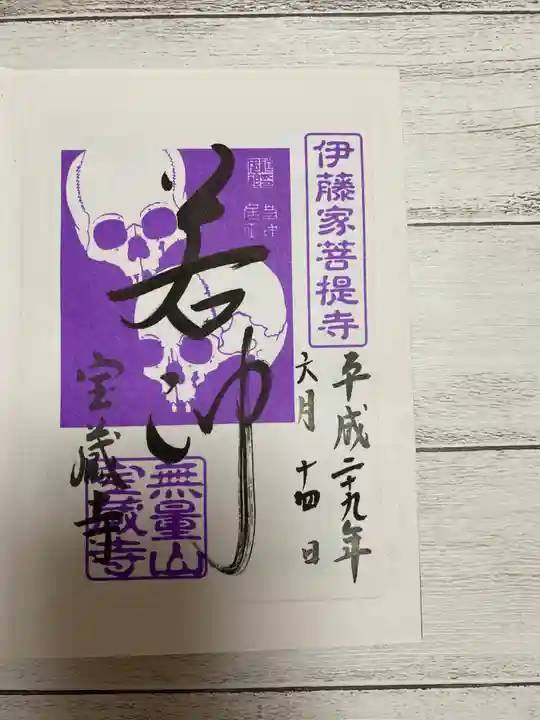 伊藤家菩提寺
平成二十九年
六月十四日
若冲
宝蔵寺
無量山
宝蔵寺